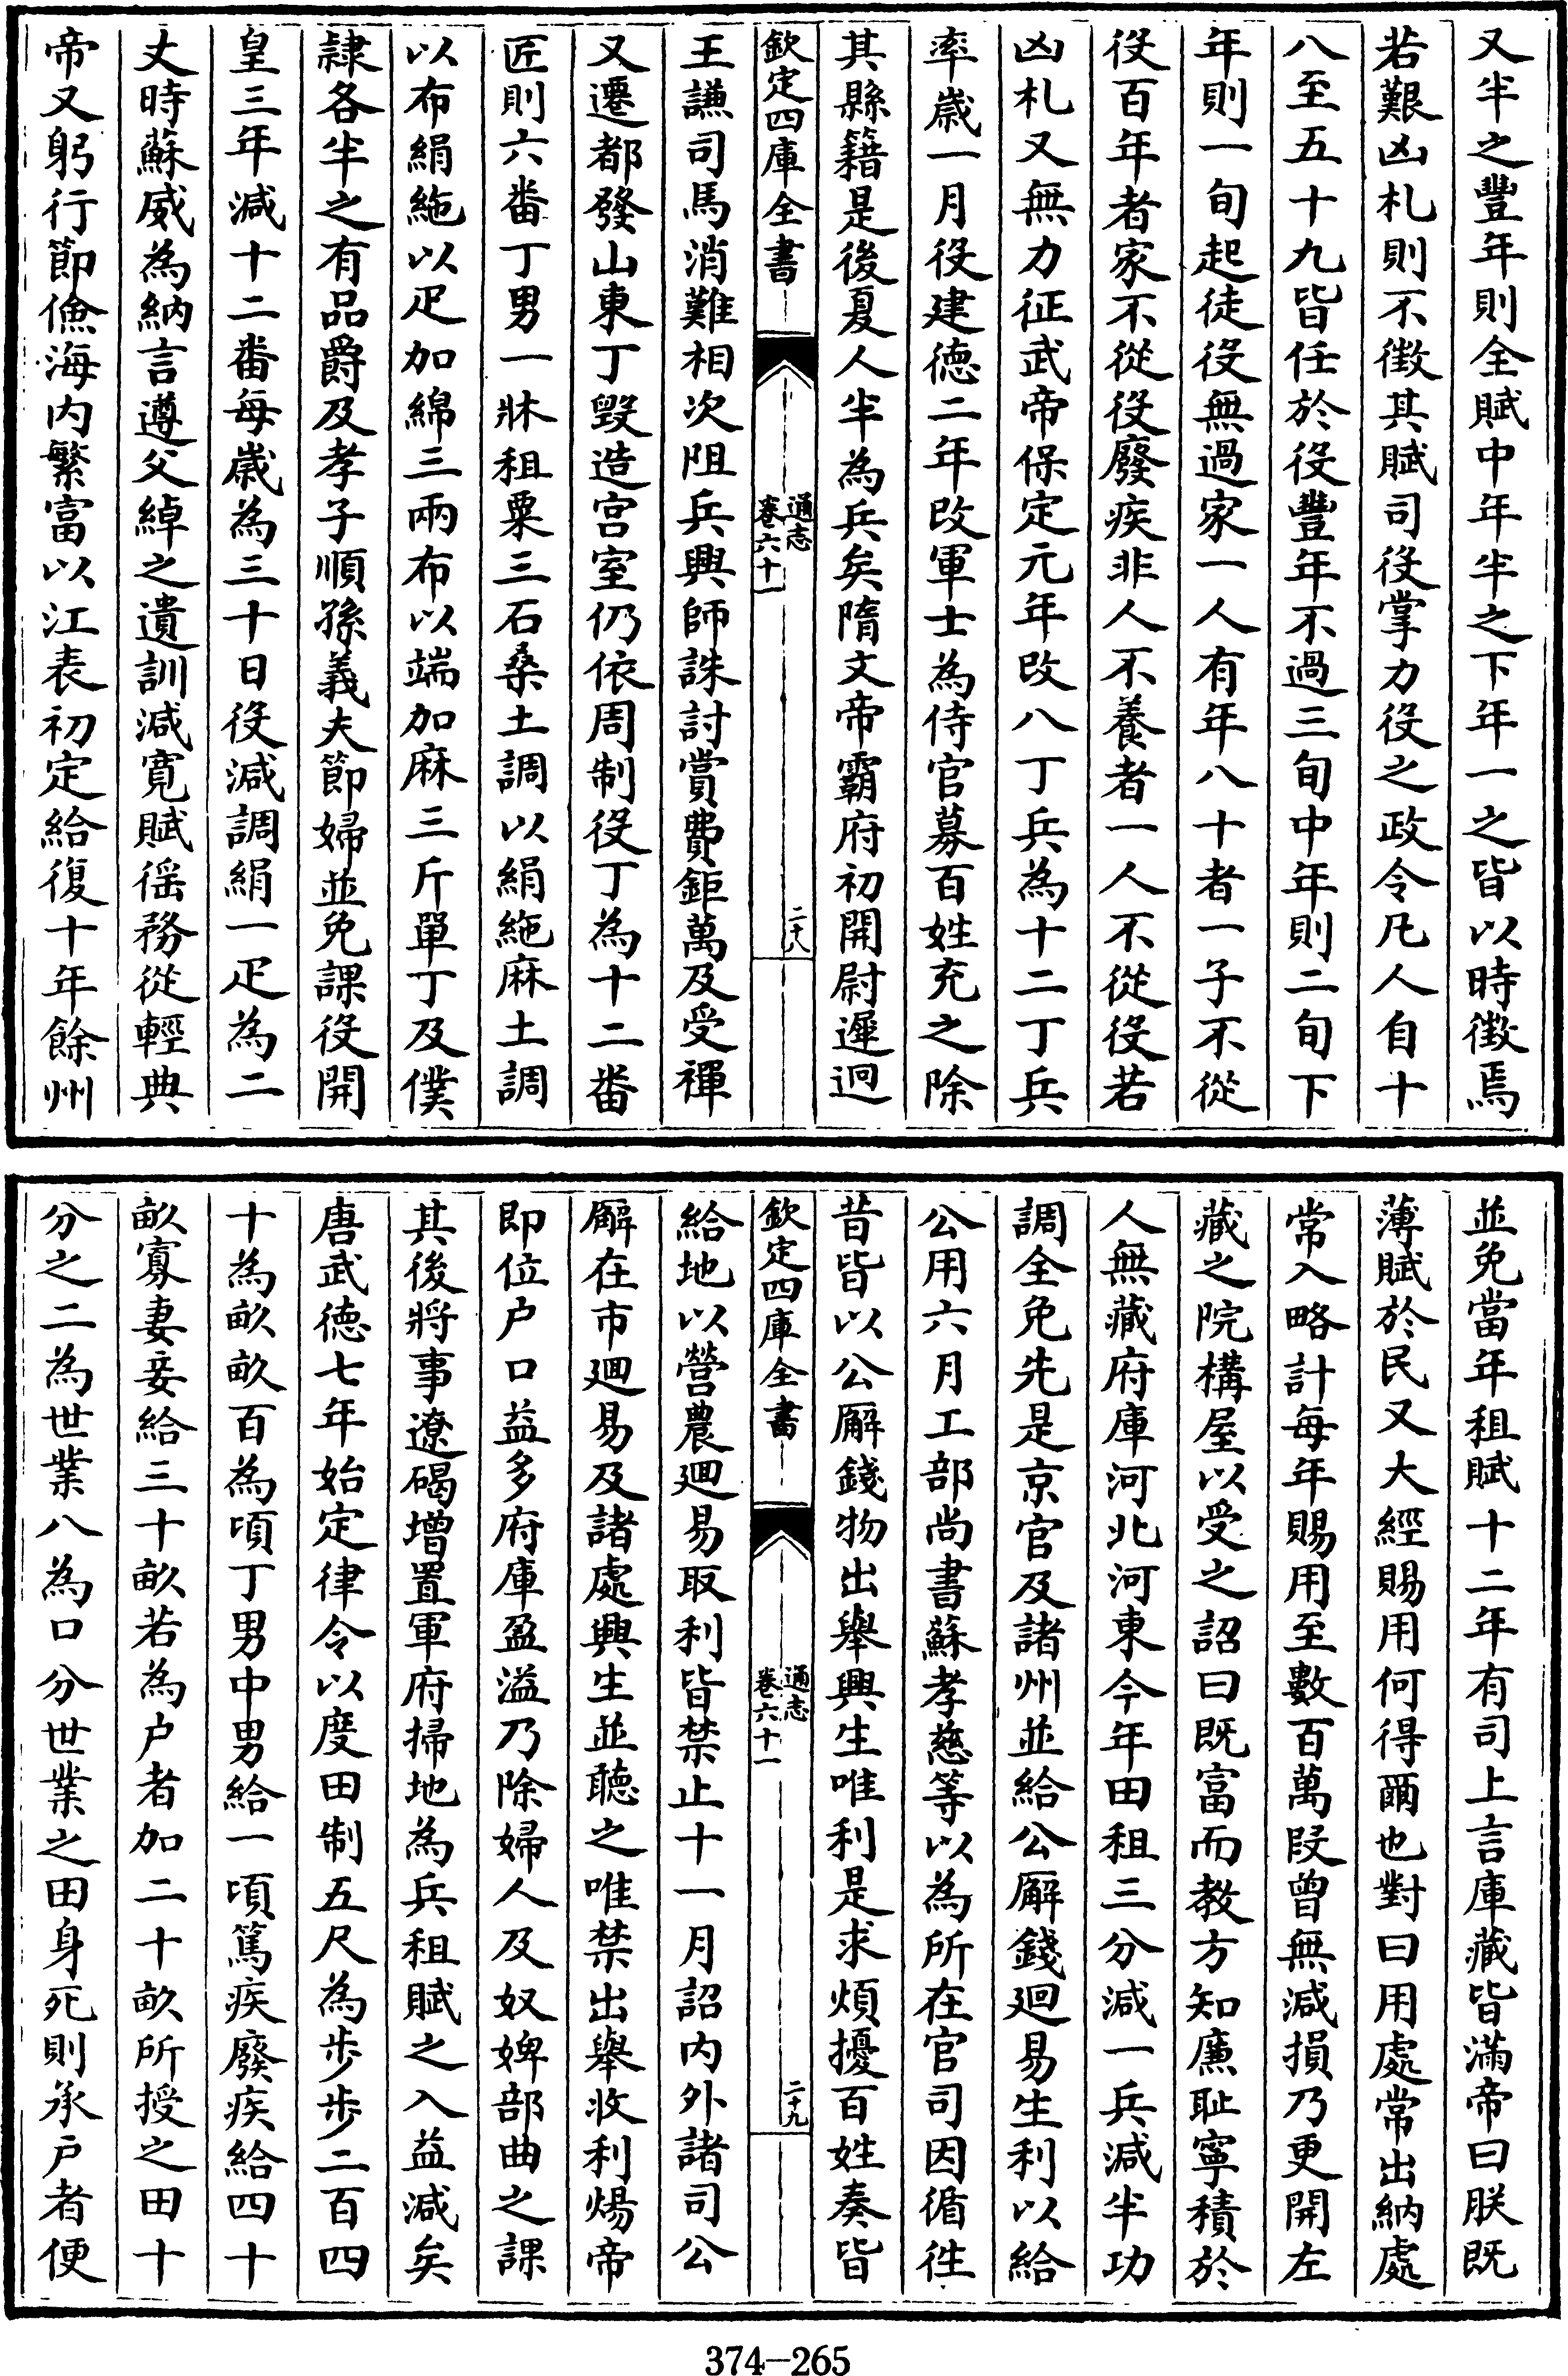 又半之豐年則全賦中年半之下年一之皆以時徵焉
若艱凶札則不徴其賦司役掌力役之政令凡人自十
八至五十九皆任於役豐年不過三旬中年則二旬下
年則一旬起徒役無過家一人有年八十者一子不從
役百年者家不從役廢疾非人不養者一人不從役若
凶札又無力征武帝保定元年改八丁兵為十二丁兵
率歲一月役建德二年改軍士為侍官募百姓充之除
其縣籍是後夏人半為兵矣隋文帝霸府初開尉遲迥
欽定四庫全書
通志
卷六十一
二十八
王謙司馬消難相次阻兵興師誅討賞費鉅萬及受禪
又遷都發山東丁毀造宫室仍依周制役丁為十二番
匠則六番丁男一牀租粟三石桑土調以絹絁麻土調
以布絹絁以疋加綿三兩布以端加麻三斤單丁及僕
隷各半之有品爵及孝子順孫義夫節婦並免課役開
皇三年減十二番每歲為三十日役減調絹一疋為二
丈時蘇威為納言遵父綽之遺訓減寛賦徭務從輕典
帝又躬行節儉海内繁富以江表初定給復十年餘州
並免當年租賦十二年有司上言庫藏皆滿帝曰朕既
薄賦於民又大經賜用何得爾也對曰用處常出納處
常入略計每年賜用至數百萬叚曾無減損乃更開左
藏之院構屋以受之詔曰既富而教方知廉耻寧積於
人無藏府庫河北河東今年田租三分減一兵減半功
調全免先是京官及諸州並給公廨錢廻易生利以給
公用六月工部尚書蘇孝慈等以為所在官司因循徃
昔皆以公廨錢物出舉興生唯利是求煩擾百姓奏皆
欽定四庫全書
通志
卷六十一
二十九
給地以營農廻易取利皆禁止十一月詔内外諸司公
廨在市廻易及諸處興生並聽之唯禁出舉收利煬帝
即位户口益多府庫盈溢乃除婦人及奴婢部曲之課
其後將事遼碣增置軍府掃地為兵租賦之入益減矣
唐武德七年始定律令以度田制五尺為步步二百四
十為畝畝百為頃丁男中男給一頃篤疾廢疾給四十
畝寡妻妾給三十畝若為户者加二十畝所授之田十
分之二為世業八為口分世業之田身死則承户者便
374-265